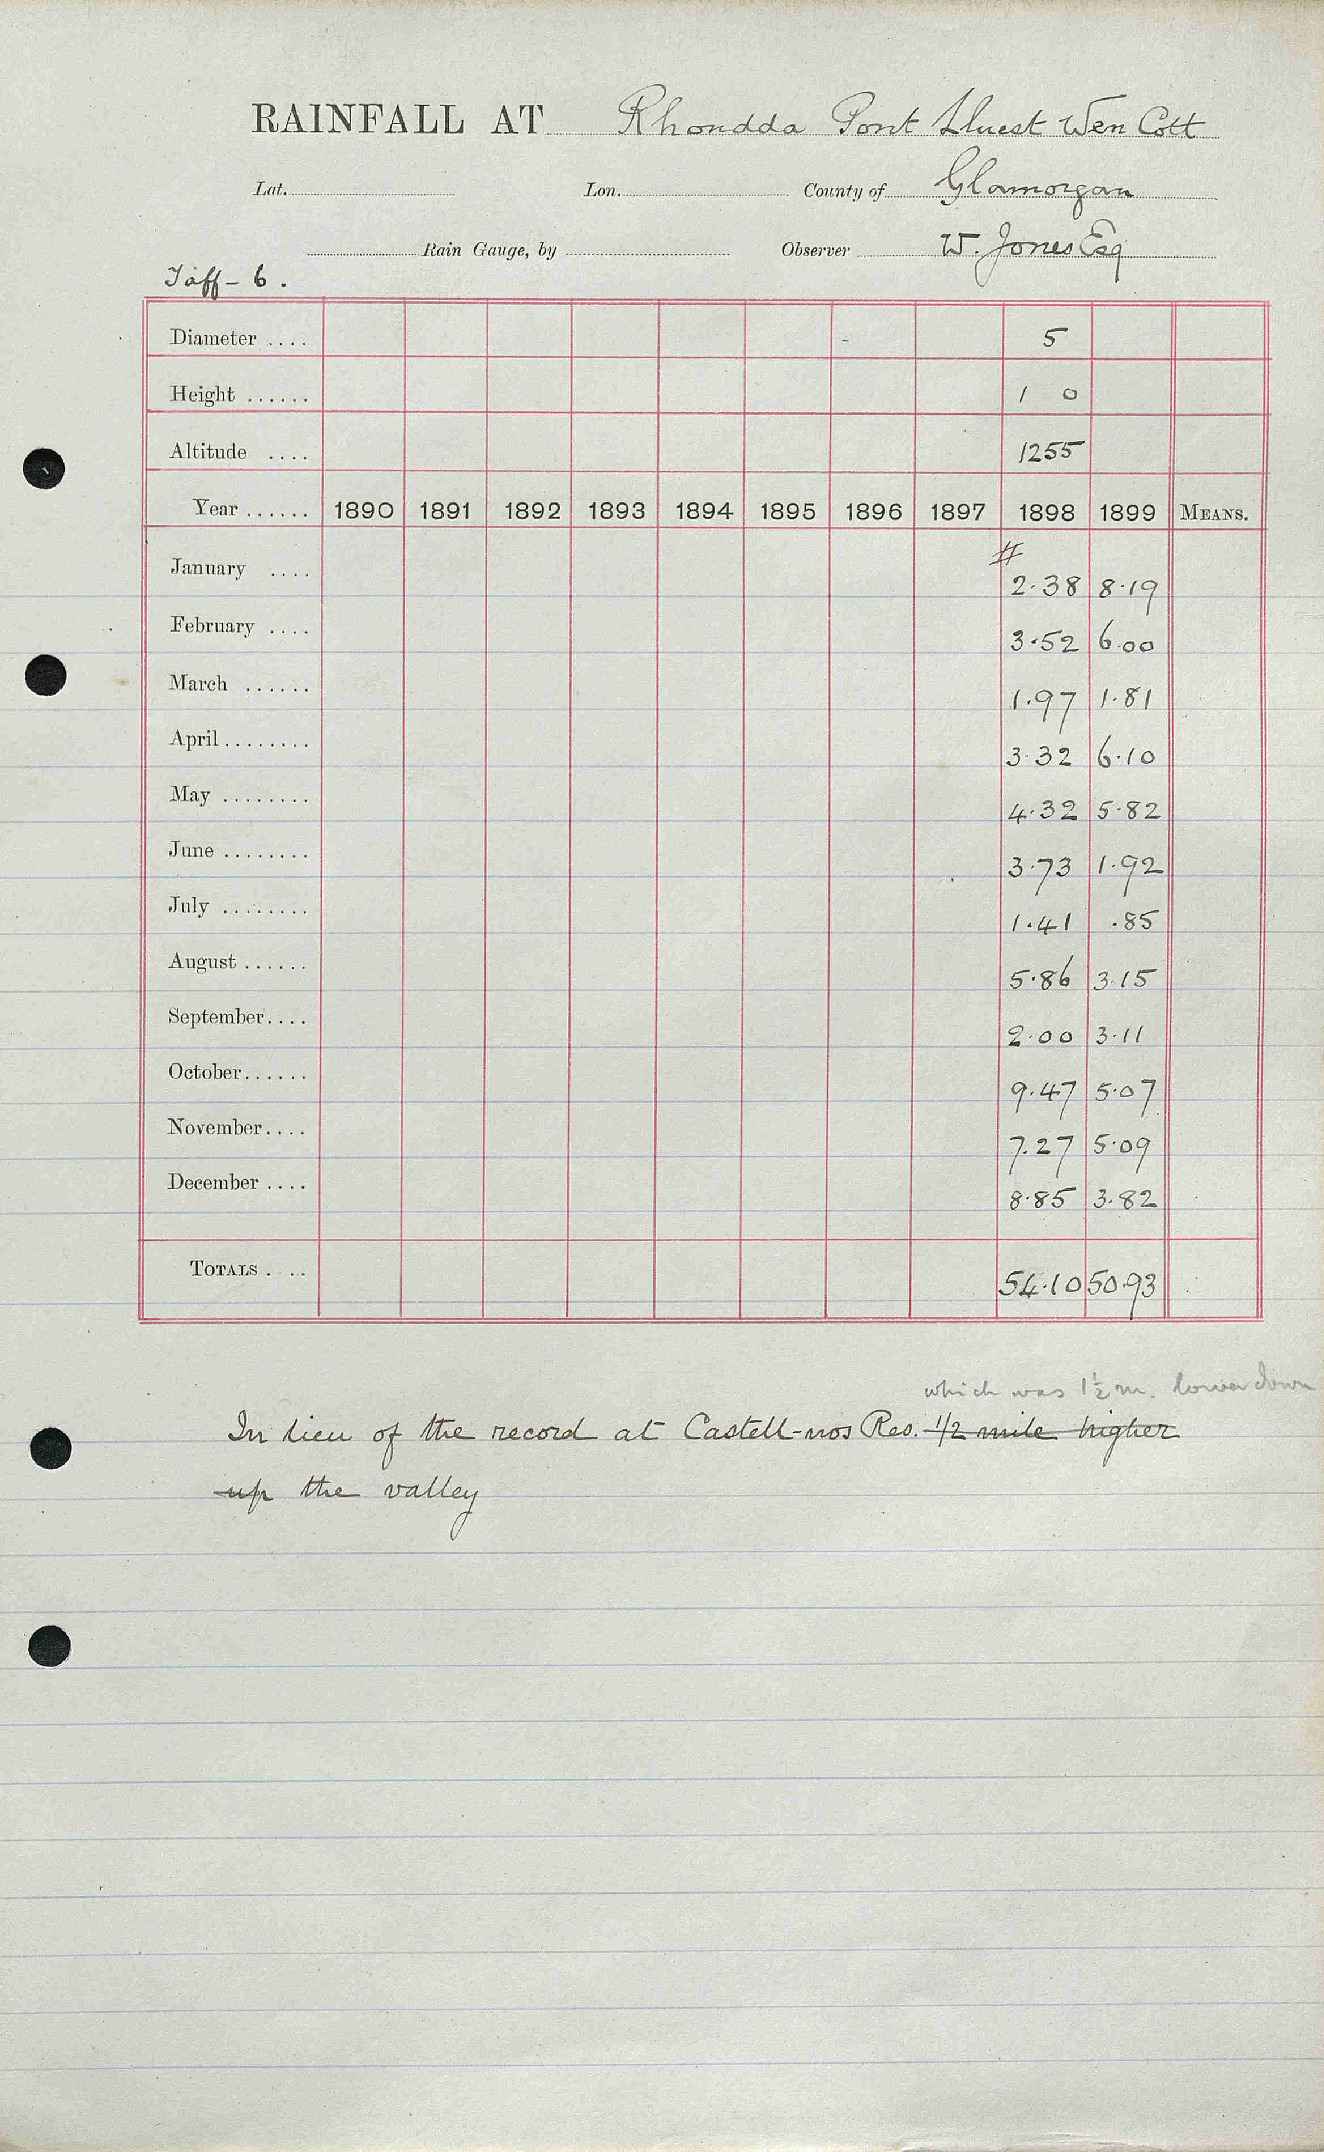 RAINFALL AT Rhondda Pont Lluest Wen Cott
Lat. Lon. County of Glamorgan
Rain Gauge, by Observer W. Jones Esq
Taff - 6.
Diameter .... 5
Height ...... 1 0
Altitude .... 1255
Year ...... 1890 1891 1892 1893 1894 1895 1896 1897 1898 1899 MEANS.
#
January .... 2.38 8.19
February .... 3.52 6.00
March ...... 1.97 1.81
April ........ 3.32 6.10
May ........ 4.32 5.82
June ........ 3.73 1.92
July ........ 1.41 .85
August ...... 5.86 3.15
September.... 2.00 3.11
October...... 9.47 5.07
November.... 7.27 5.09
December .... 8.85 3.82
TOTALS .... 54.10 50.93
which was 1½ m. lower down
In lieu of the record at Castell-nos Res. 1/2 mile higher
up the valley